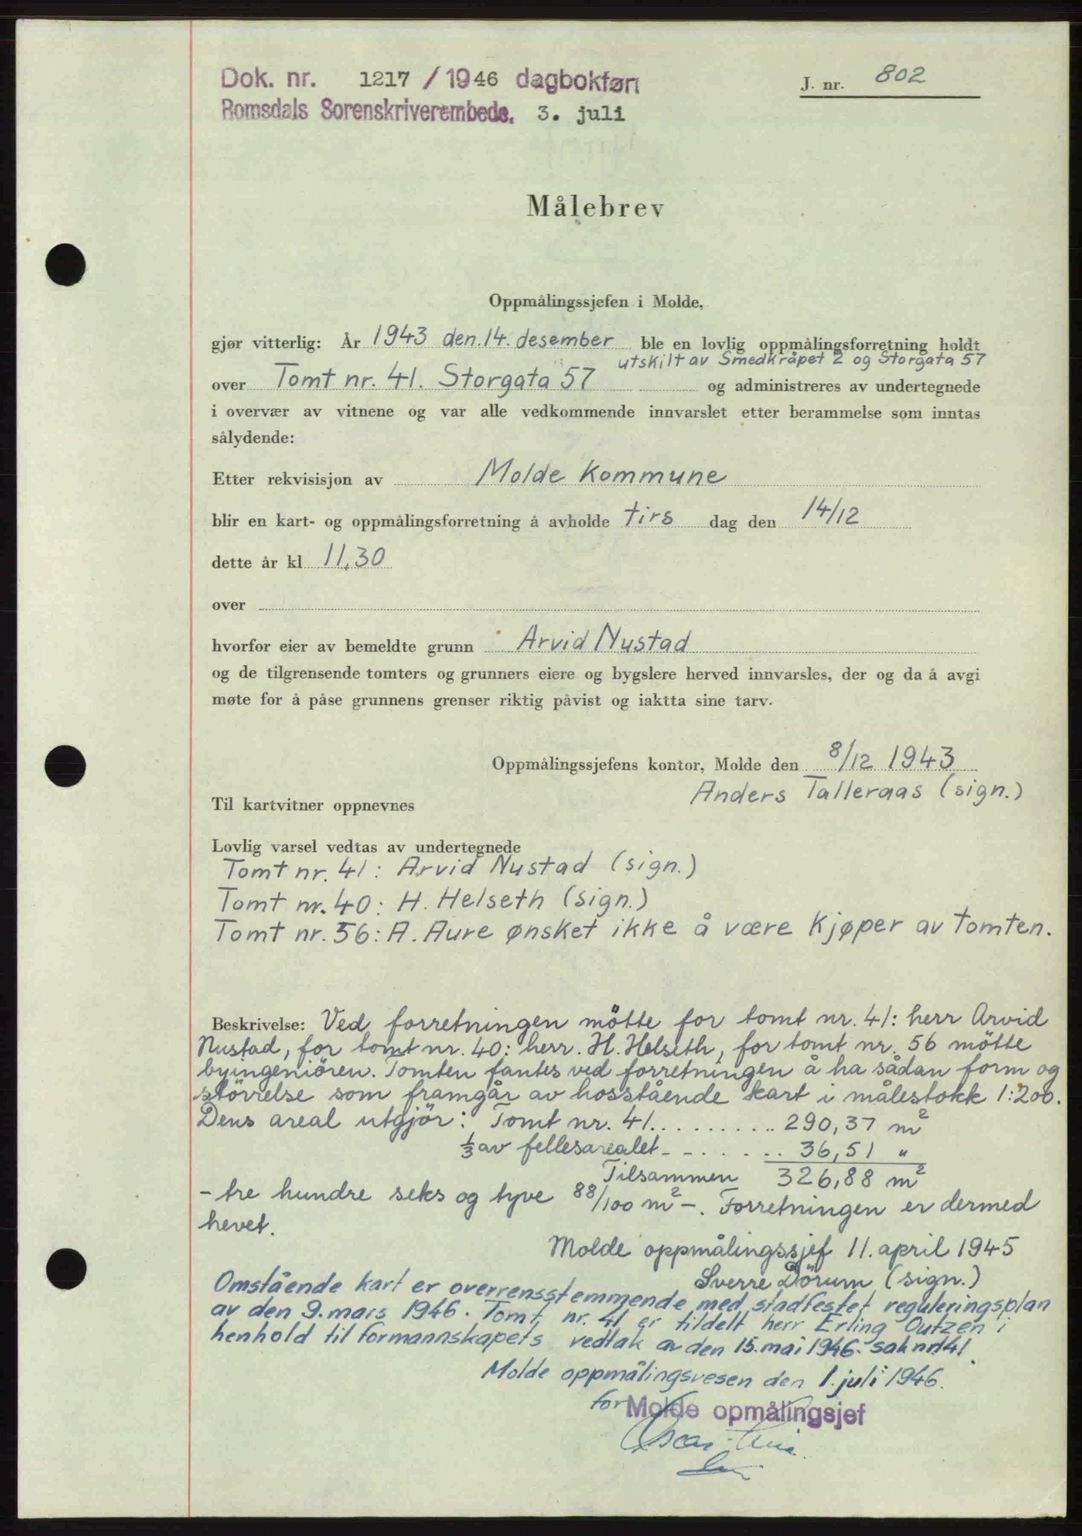 Dok. nr. 1217 / 1946 dagbokført
Romsdals Sorenskriverembede. 3. juli
J. nr. 802
Målebrev
Oppmålingssjefen i Molde,
gjør vitterlig: År 1943 den. 14. desember ble en lovlig oppmålingsforretning holdt
utskilt av Smedkråpet 2 og Storgata 57
over Tomt nr. 41. Storgata 57 og administreres av undertegnede
i overvær av vitnene og var alle vedkommende innvarslet etter berammelse som inntas
sålydende:
Etter rekvisisjon av Molde Kommune
blir en kart- og oppmålingsforretning å avholde tirs dag den 14/12
dette år kl 11,30
over
hvorfor eier av bemeldte grunn Arvid Nustad
og de tilgrensende tomters og grunners eiere og bygslere herved innvarsles, der og da å avgi
møte for å påse grunnens grenser riktig påvist og iaktta sine tarv.
Oppmålingssjefens kontor, Molde den 8/12 1943
Anders Talleraas (sign.)
Til kartvitner oppnevnes
Lovlig varsel vedtas av undertegnede
Tomt nr. 41: Arvid Nustad (sign.)
Tomt nr. 40: H. Helseth (sign.)
Tomt nr. 56: A. Aure ønsket ikke å være Kjøper av tomten.
Beskrivelse: Ved forretningen mötte for tomt nr. 41: herr Arvid
Nustad, for tomt nr. 40: herr. H. Helseth, for tomt nr. 56 mötte
byingeniören. Tomten fantes ved forretningen å ha sådan form og
störrelse som framgår av hosstående kart i målestokk 1:200.
Dens areal utgjör: Tomt nr. 41.......... 290,37 m²
1/3 av fellesarealet - - . . . . .. 36,51 "
Tilsammen 326,88 m²
- tre hundre seks og tyve 88/100 m² -. Forretningen er dermed
hevet.
Molde oppmålingssjef 11. april 1945
Sverre Dörum (sign.)
Omstående kart er overrensstemmende med stadfestet reguleringsplan
av den 9. mars 1946. Tomt nr. 41 er tildelt herr Erling Outzen i
henhold til formannskapets vedtak av den 15. mai 1946. sak nr 141.
Molde oppmålingsvesen den 1. juli 1946.
for Molde opmålingsjef
Oscar